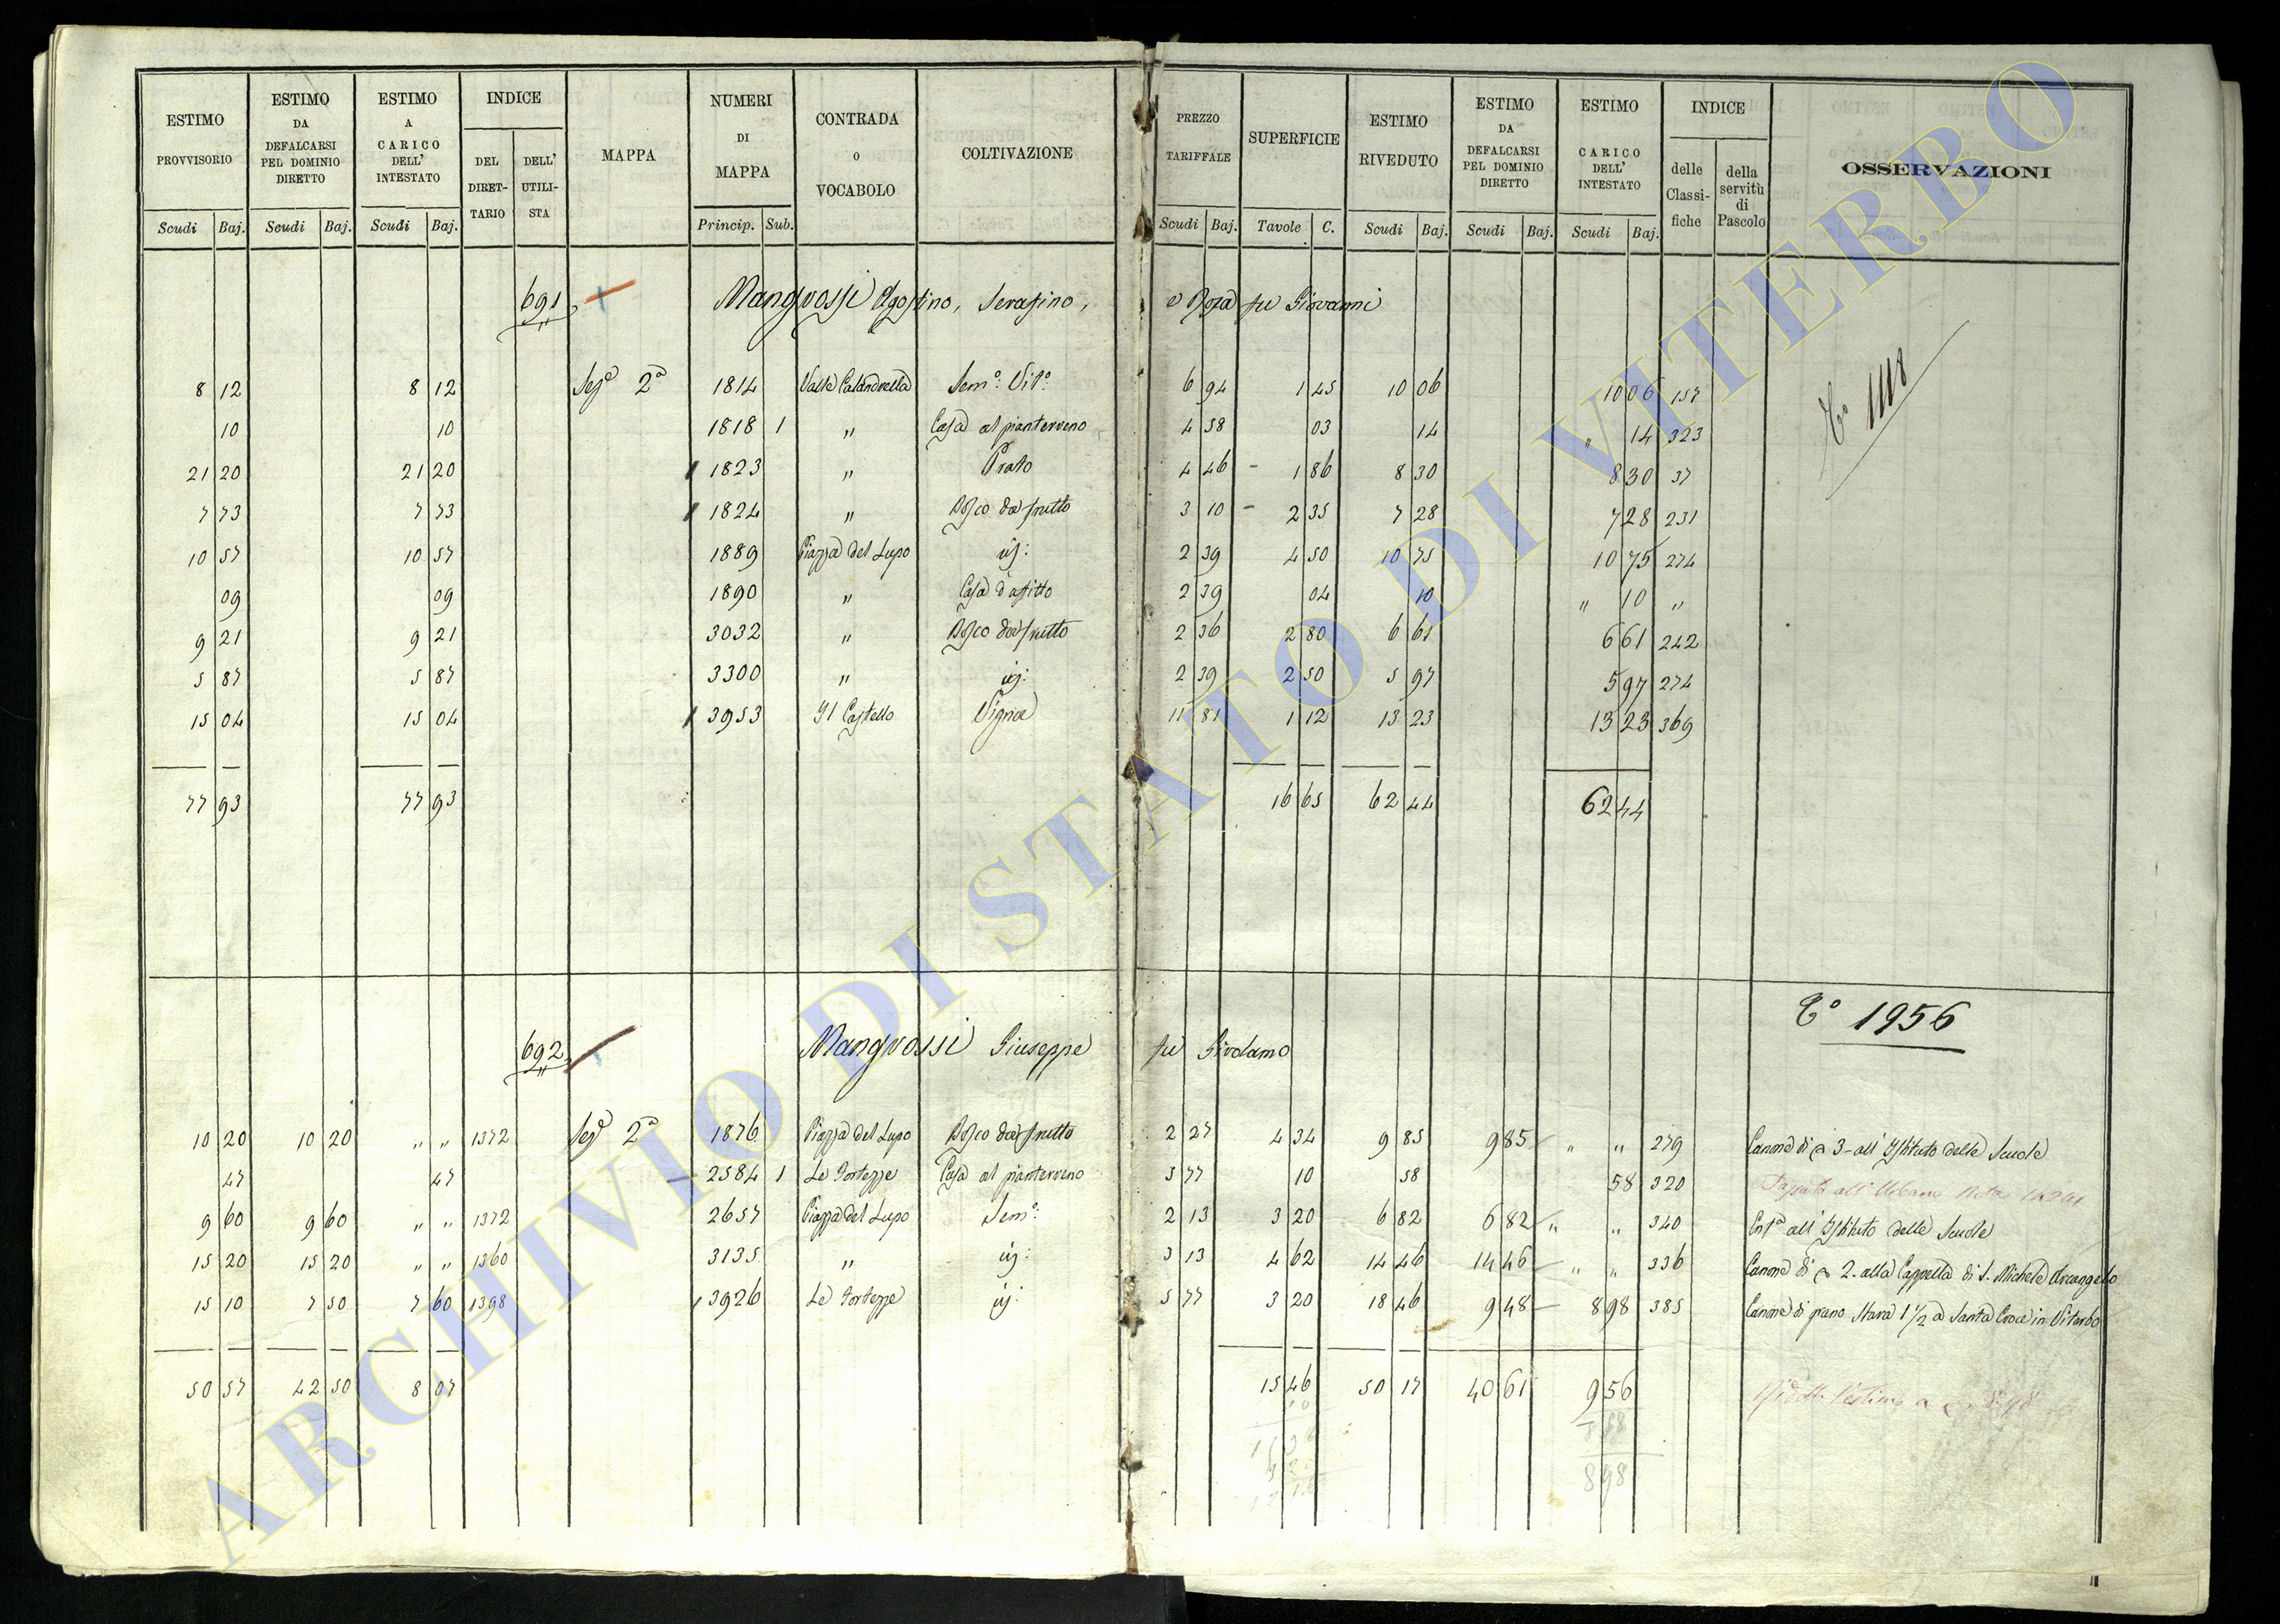 ESTIMO PROVVISORIO Scudi Baj.
ESTIMO DA DEFALCARSI PEL DOMINIO DIRETTO Scudi Baj.
ESTIMO A CARICO DELL' INTESTATO Scudi Baj.
INDICE DEL DIRETTARIO DELL' UTILISTA
MAPPA
NUMERI DI MAPPA Princip. Sub.
CONTRADA O VOCABOLO
COLTIVAZIONE
PREZZO TARIFFALE Scudi Baj.
SUPERFICIE Tavole C.
ESTIMO RIVEDUTO Scudi Baj.
ESTIMO DA DEFALCARSI PEL DOMINIO DIRETTO Scudi Baj.
ESTIMO A CARICO DELL' INTESTATO Scudi Baj.
INDICE delle Classifiche della servitù di Pascolo
OSSERVAZIONI
691 Mangrossi Agostino, Serafino, e Rosa fu Giovanni
8 12 8 12 Sezᵉ 2ᵃ 1814 Valle Calandrella Semᵒ: Vitᵒ: 6 94 1 45 10 06 10 06 157
10 10 1818 1 " Casa al pianterreno 4 58 03 14 " 14 323
21 20 21 20 1823 " Prato 4 46 - 1 86 8 30 8 30 37
7 73 7 73 1824 " Bosco da frutto 3 10 - 2 35 7 28 7 28 231
10 57 10 57 1889 Piazza del Lupo ij: 2 39 4 50 10 75 10 75 274
09 09 1890 " Casa d'affitto 2 39 04 10 " 10 "
9 21 9 21 3032 " Bosco da frutto 2 36 2 80 6 61 6 61 242
5 87 5 87 3300 " ij: 2 39 2 50 5 97 5 97 274
15 04 15 04 3953 Il Castello Vigna 11 81 1 12 13 23 13 23 369
77 93 77 93 16 65 62 44 62 44
Tᵒ 1118
Tᵒ 1956
692 Mangrossi Giuseppe fu Girolamo
10 20 10 20 " " 1372 Sezᵉ 2ᵃ 1876 Piazza del Lupo Bosco da frutto 2 27 4 34 9 85 9 85 " " 279 Canone di 3 - all' Istituto delle Scuole
47 47 2584 1 Le Fortezze Casa al pianterreno 5 77 10 58 58 320
9 60 9 60 " " 1372 2657 Piazza del Lupo Semᵒ: 2 13 3 20 6 82 6 82 " " 340 all' Istituto delle Scuole
15 20 15 20 " " 1360 3135 " ij: 3 13 4 62 14 46 14 46 " " 336 Canone di 2. alla Cappella di S. Michele Arcangelo
15 10 7 50 7 60 1398 3926 Le Fortezze ij: 5 77 3 20 18 46 9 48 8 98 385 Canone di grano Stara 1 1/2 a Santa Croce in Viterbo
50 57 42 50 8 07 15 46 50 17 40 61 9 56
898
ARCHIVIO DI STATO DI VITERBO